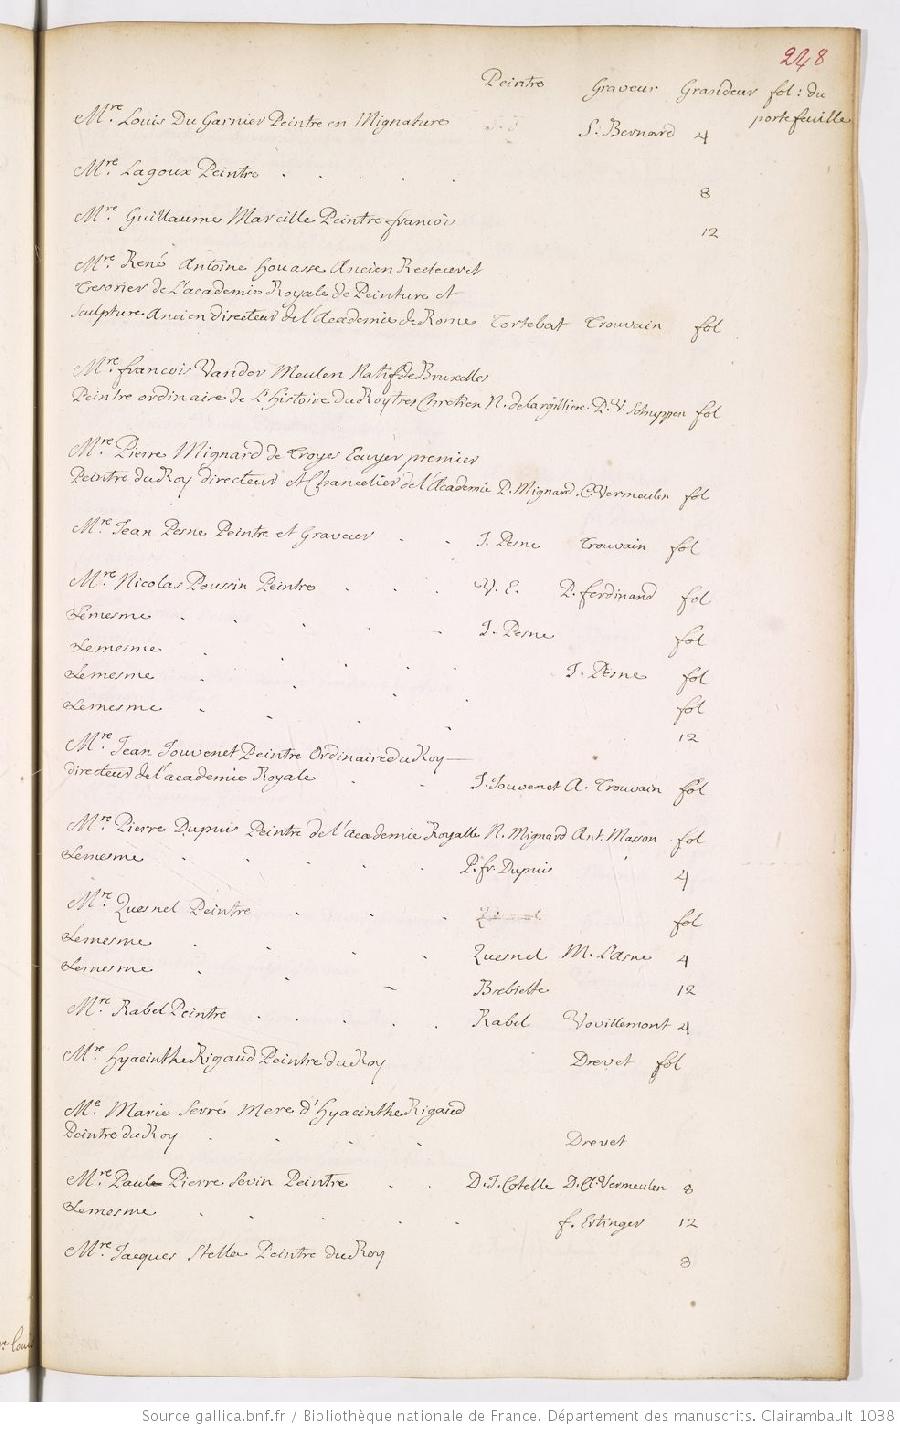 248
Peintre Graveur Grandeur fol: du
portefeuille
Mre. Louis Du Garnier Peintre en Mignature S. Bernard 4
Mre. Lagoux Peintre . . . . 8
Mre. Guillaume Marcille Peintre francois 12
Mre. René Antoine houasse Ancien Recteur et
Tresorier de L'academie Royale de Peinture et
Sculpture Ancien directeur de l'Academie de Rome Tortebat Trouvain fol
Mre. francois Vander Meulen Natif de Bruxelles
Peintre ordinaire de L'histoire du Roy tres Chretien N. de Largilliere. P. V. Schuppen fol
Mre. Pierre Mignard de Troyes Ecuyer premier
Peintre du Roy directeur et Chancelier de l'Academie P. Mignard. C. Vermeulen fol
Mre. Jean Pesne Peintre et Graveur . . J. Pesne Trouvain fol
Mre. Nicolas Poussin Peintre . . . V. E. P. ferdinand fol
Lemesme . . . . . J. Pesne fol
Lemesme . . . . J. Pesne fol
Lemesme . . . . fol
Lemesme . . . 12
Mre. Jean Jouvenet Peintre Ordinaire du Roy
directeur de l'academie Royale . . J. Jouvenet A. Trouvain fol
Mre. Pierre Dupuis Peintre de l'academie Royalle N. Mignard Ant. Masson fol
Lemesme . . . . P. fr. Dupuis 4
Mre. Quesnel Peintre . . . fol
Lemesme . . . . Quesnel M. Lasne 4
Lemesme . . Brebiette 12
Mre. Rabel Peintre . . . . . Rabel Vouillemont 4
Mre. Hyacinthe Rigaud Peintre du Roy Drevet fol
Me. Marie Serré mere d'Hyacinthe Rigaud
Peintre du Roy . . . . Drevet
Mre. Paul Pierre Sevin Peintre . . D. J. Cotelle D. C. Vermeulen 8
Lemesme . . . . . f. Ertinger 12
Mre. Jacques Stella Peintre du Roy 8
Source gallica.bnf.fr / Bibliothèque nationale de France. Département des manuscrits. Clairambault 1038